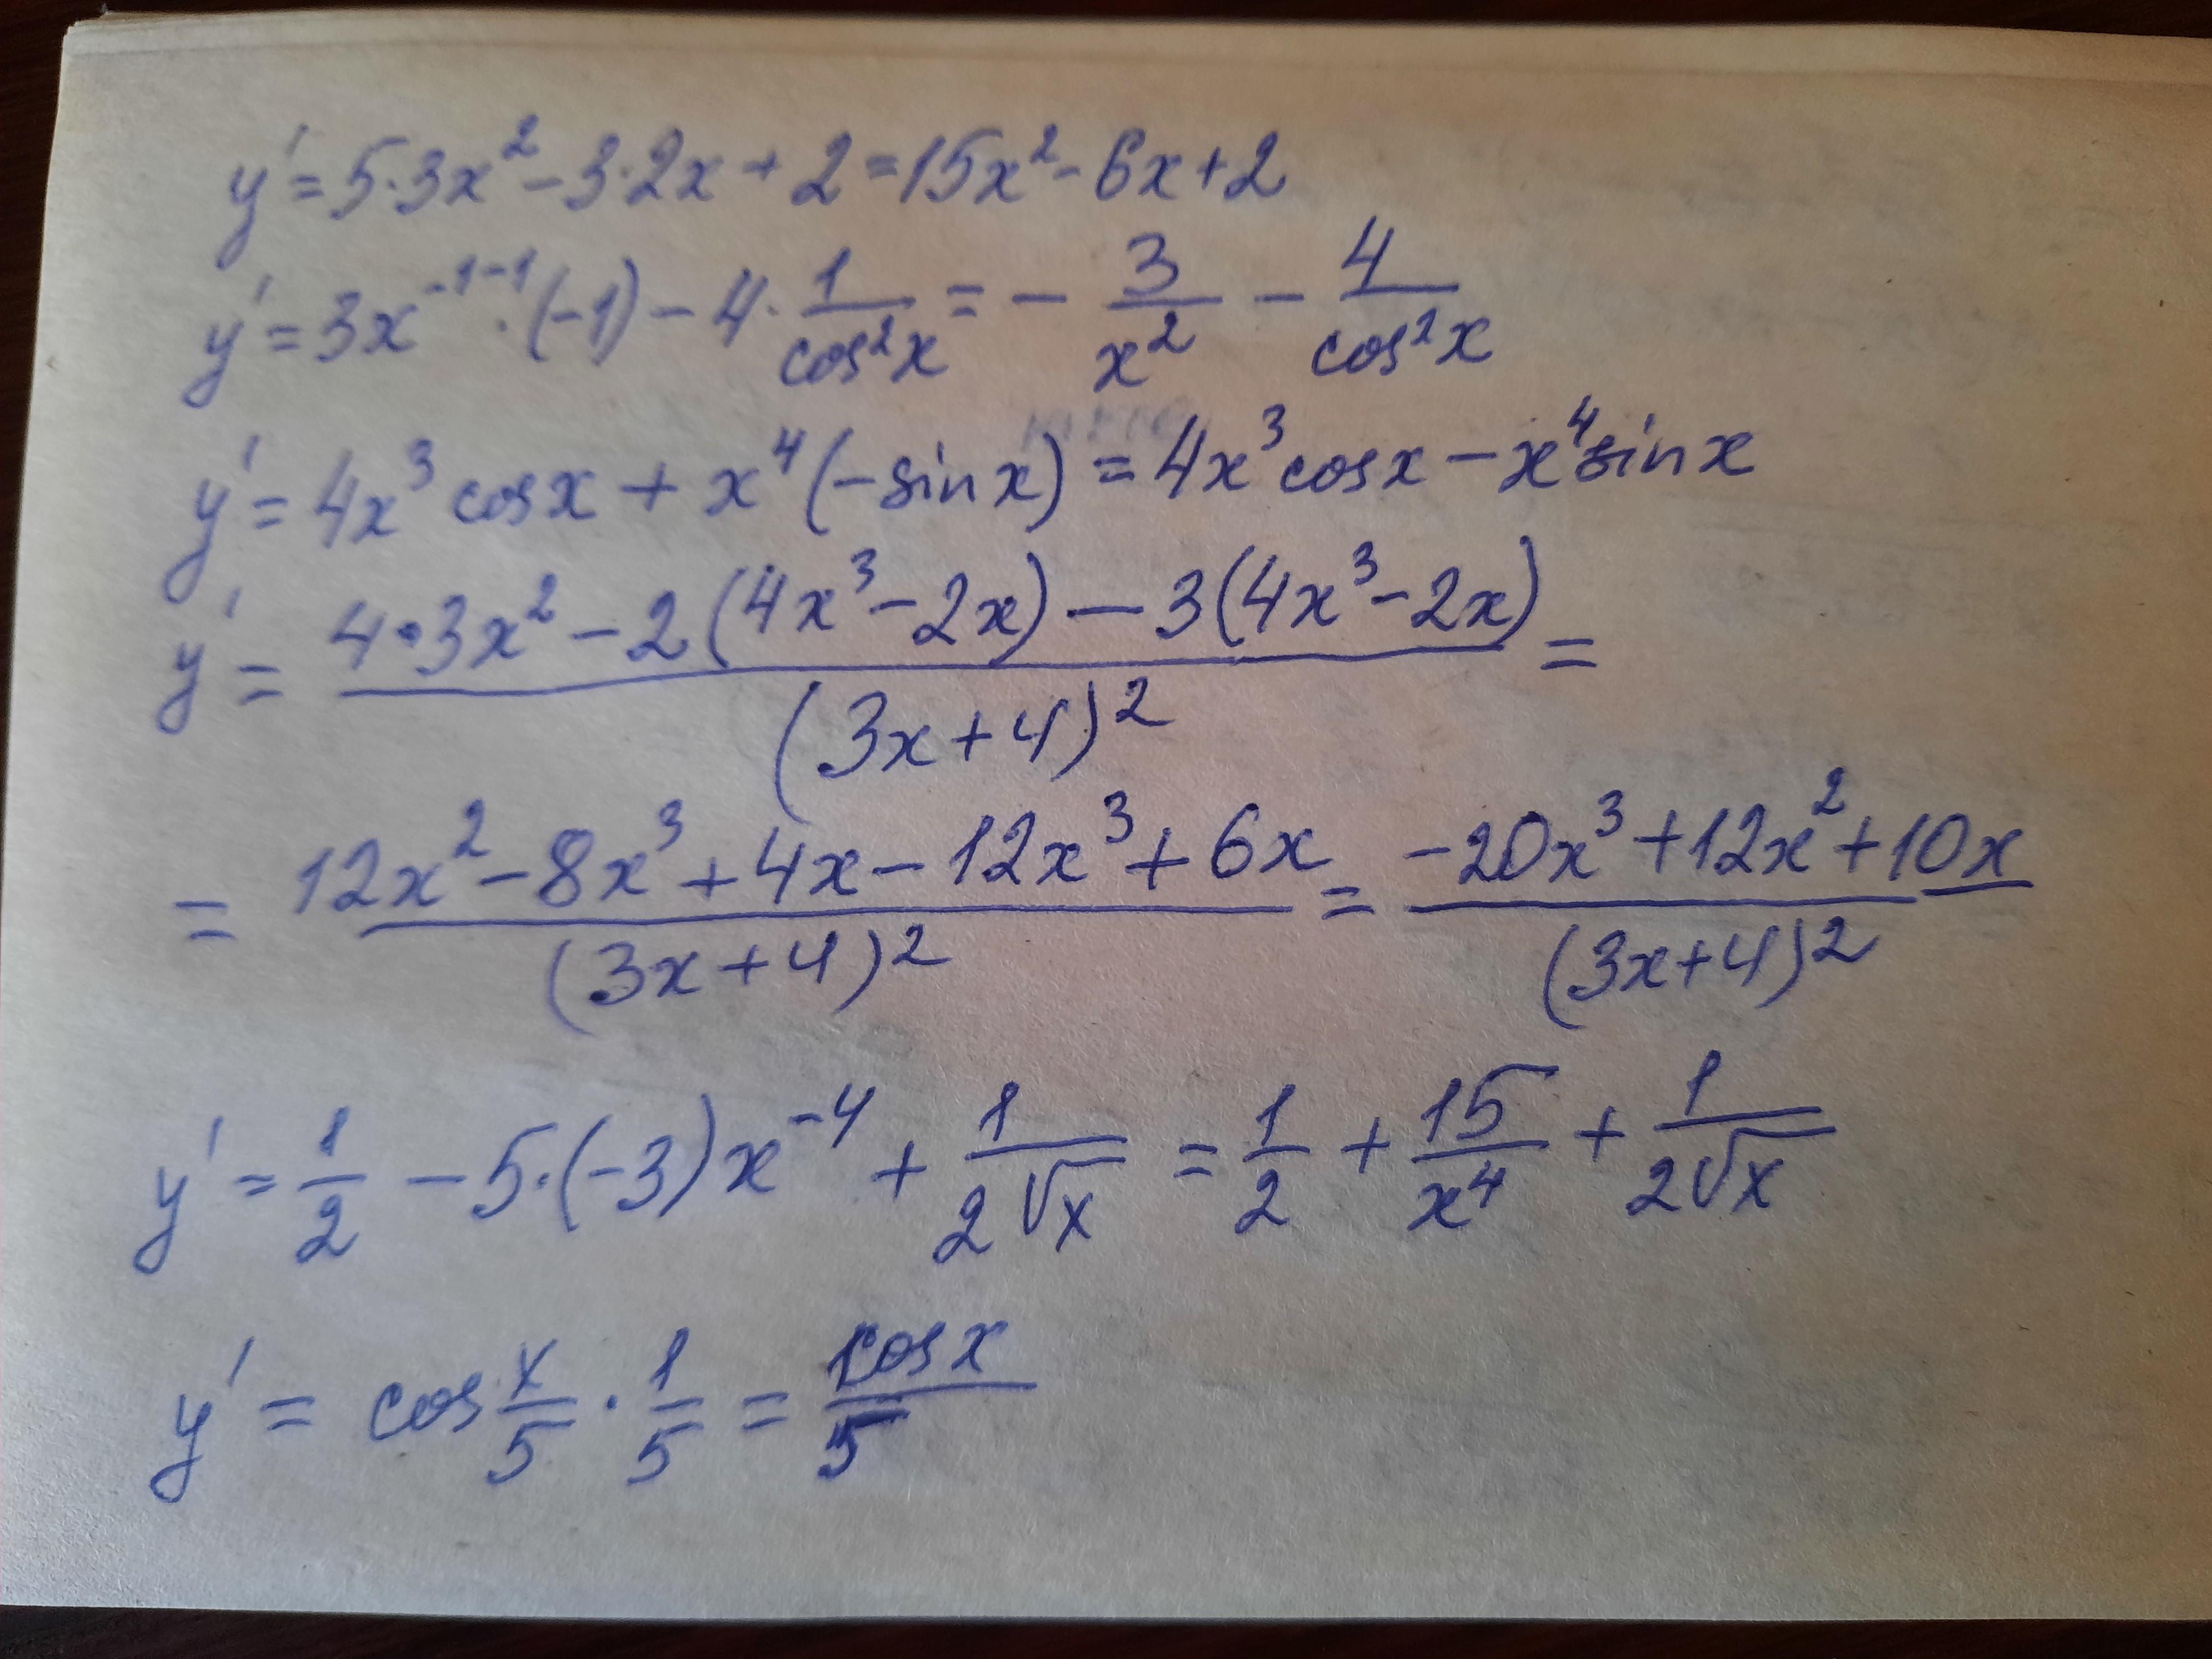 y' = 5·3x² - 3·2x + 2 = 15x² - 6x + 2
y' = 3x⁻¹⁻¹·(-1) - 4·1/cos²x = - 3/x² - 4/cos²x
y' = 4x³ cosx + x⁴(-sinx) = 4x³ cosx - x⁴sinx
y' = (4·3x² - 2(4x³ - 2x) - 3(4x³ - 2x))/(3x+4)² =
= (12x² - 8x³ + 4x - 12x³ + 6x)/(3x+4)² = (-20x³ + 12x² + 10x)/(3x+4)²
y' = 1/2 - 5·(-3)x⁻⁴ + 1/(2√x) = 1/2 + 15/x⁴ + 1/(2√x)
y' = cos x/5 · 1/5 = cosx/5